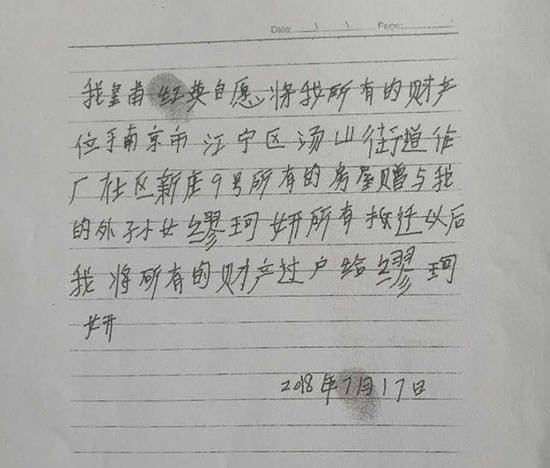 Date: \ \ Page:
我皇甫红英自愿将我所有的财产
位于南京市江宁区汤山街道作
厂社区新庄9号所有的房屋赠与我
的外孙女缪珂妍所有拆迁以后
我将所有的财产过户给缪珂
妍
2018年7月17日